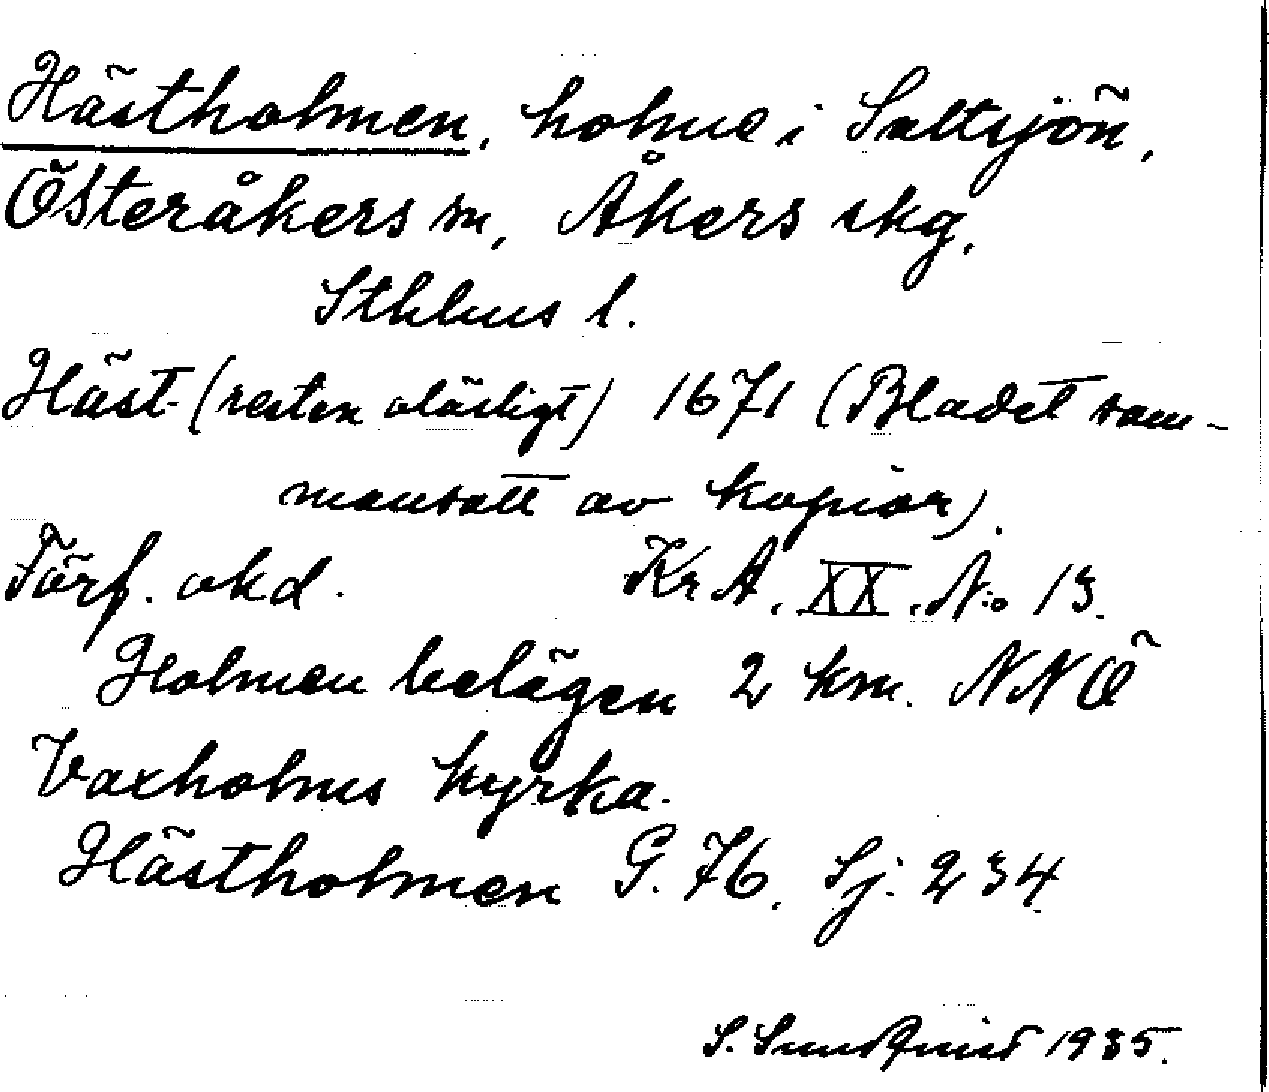 Hästholmen, holme i Saltsjön,
Österåkers sn, Åkers skg,
Sthlms l.
Häst- (resten oläsligt) 1671 (Bladet sam-
mansatt av kopior).
Förf. okd. Kr A. XX. No 13.
Holmen belägen 2 km. NNÖ
Vaxholms kyrka.
Hästholmen G. 76. Sj. 234
S. Sundquist 1935.